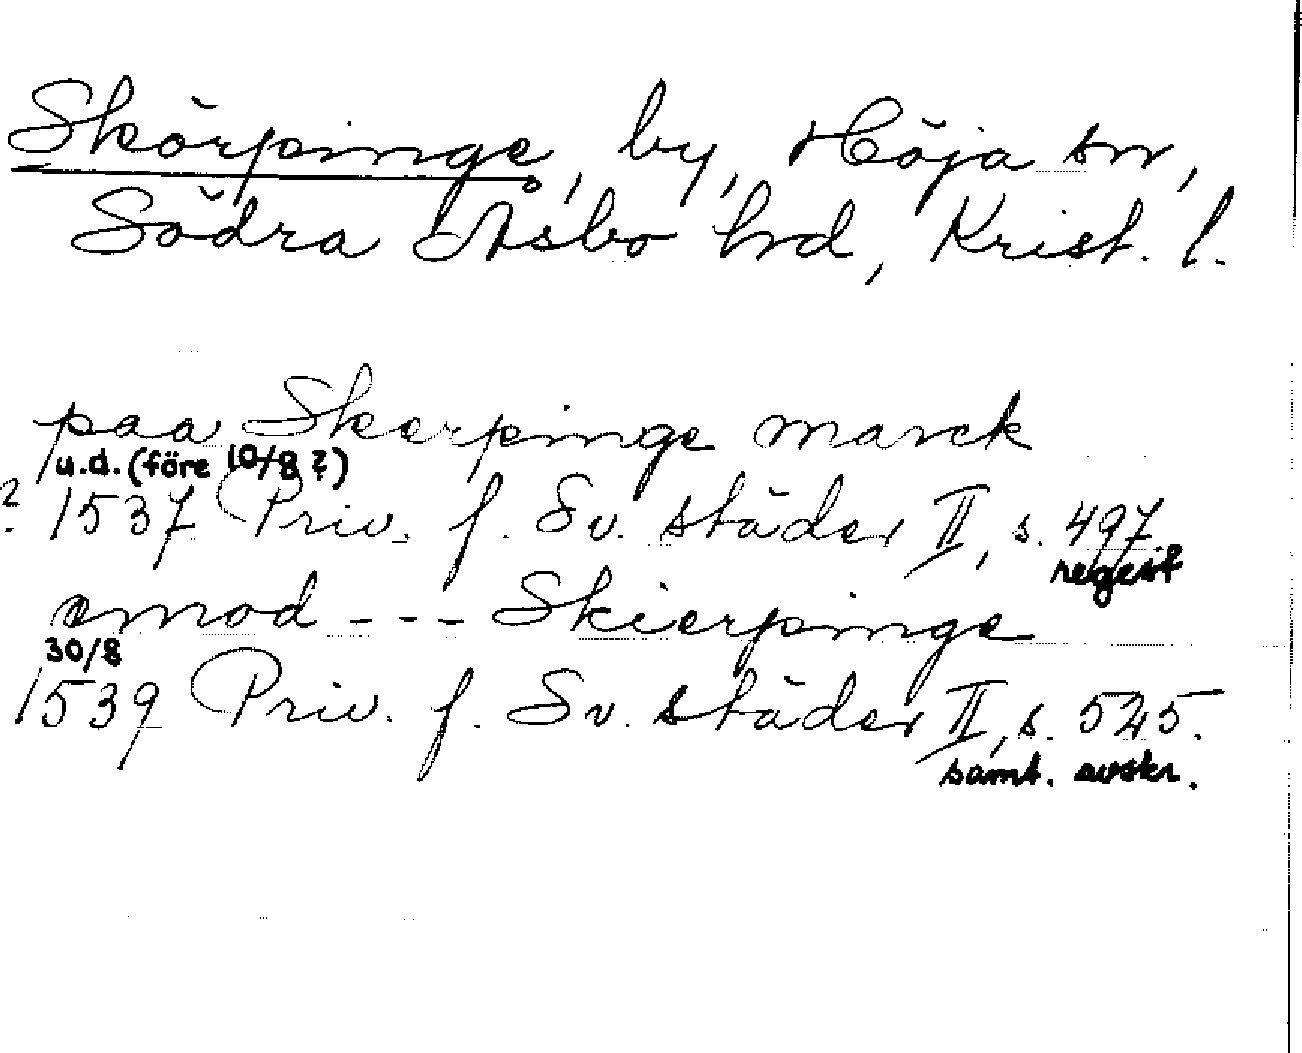 Skörpinge, by, Höja sn,
Södra Åsbo hrd, Krist. l.
paa Skerpinge marck
u.d. (före 10/8?)
? 1537 Priv. f. Sv. städer II, s. 497
regest
emod --- Skierpinge
30/8
1539 Priv. f. Sv. städer II, s. 525.
samt. avskr.